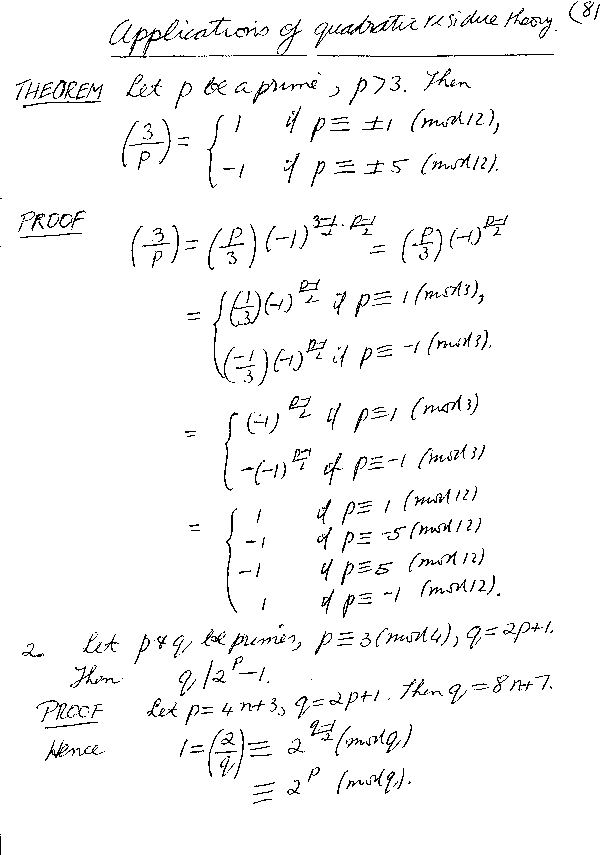 Applications of quadratic residue theory. (81
THEOREM Let p be a prime, p>3. Then
(3/p) = { 1 if p ≡ ±1 (mod 12),
-1 if p ≡ ±5 (mod 12).
PROOF
(3/p) = (p/3) (-1)^{(3-1)/2 · (p-1)/2} = (p/3) (-1)^{(p-1)/2}
= { (1/3) (-1)^{(p-1)/2} if p ≡ 1 (mod 3),
(-1/3) (-1)^{(p-1)/2} if p ≡ -1 (mod 3).
= { (-1)^{(p-1)/2} if p ≡ 1 (mod 3)
-(-1)^{(p-1)/2} if p ≡ -1 (mod 3)
= { 1 if p ≡ 1 (mod 12)
-1 if p ≡ -5 (mod 12)
-1 if p ≡ 5 (mod 12)
1 if p ≡ -1 (mod 12).
2. Let p & q be primes, p ≡ 3 (mod 4), q = 2p+1.
Then q | 2^p - 1.
PROOF Let p = 4n+3, q = 2p+1. Then q = 8n+7.
Hence 1 = (2/q) ≡ 2^{(q-1)/2} (mod q)
≡ 2^p (mod q).